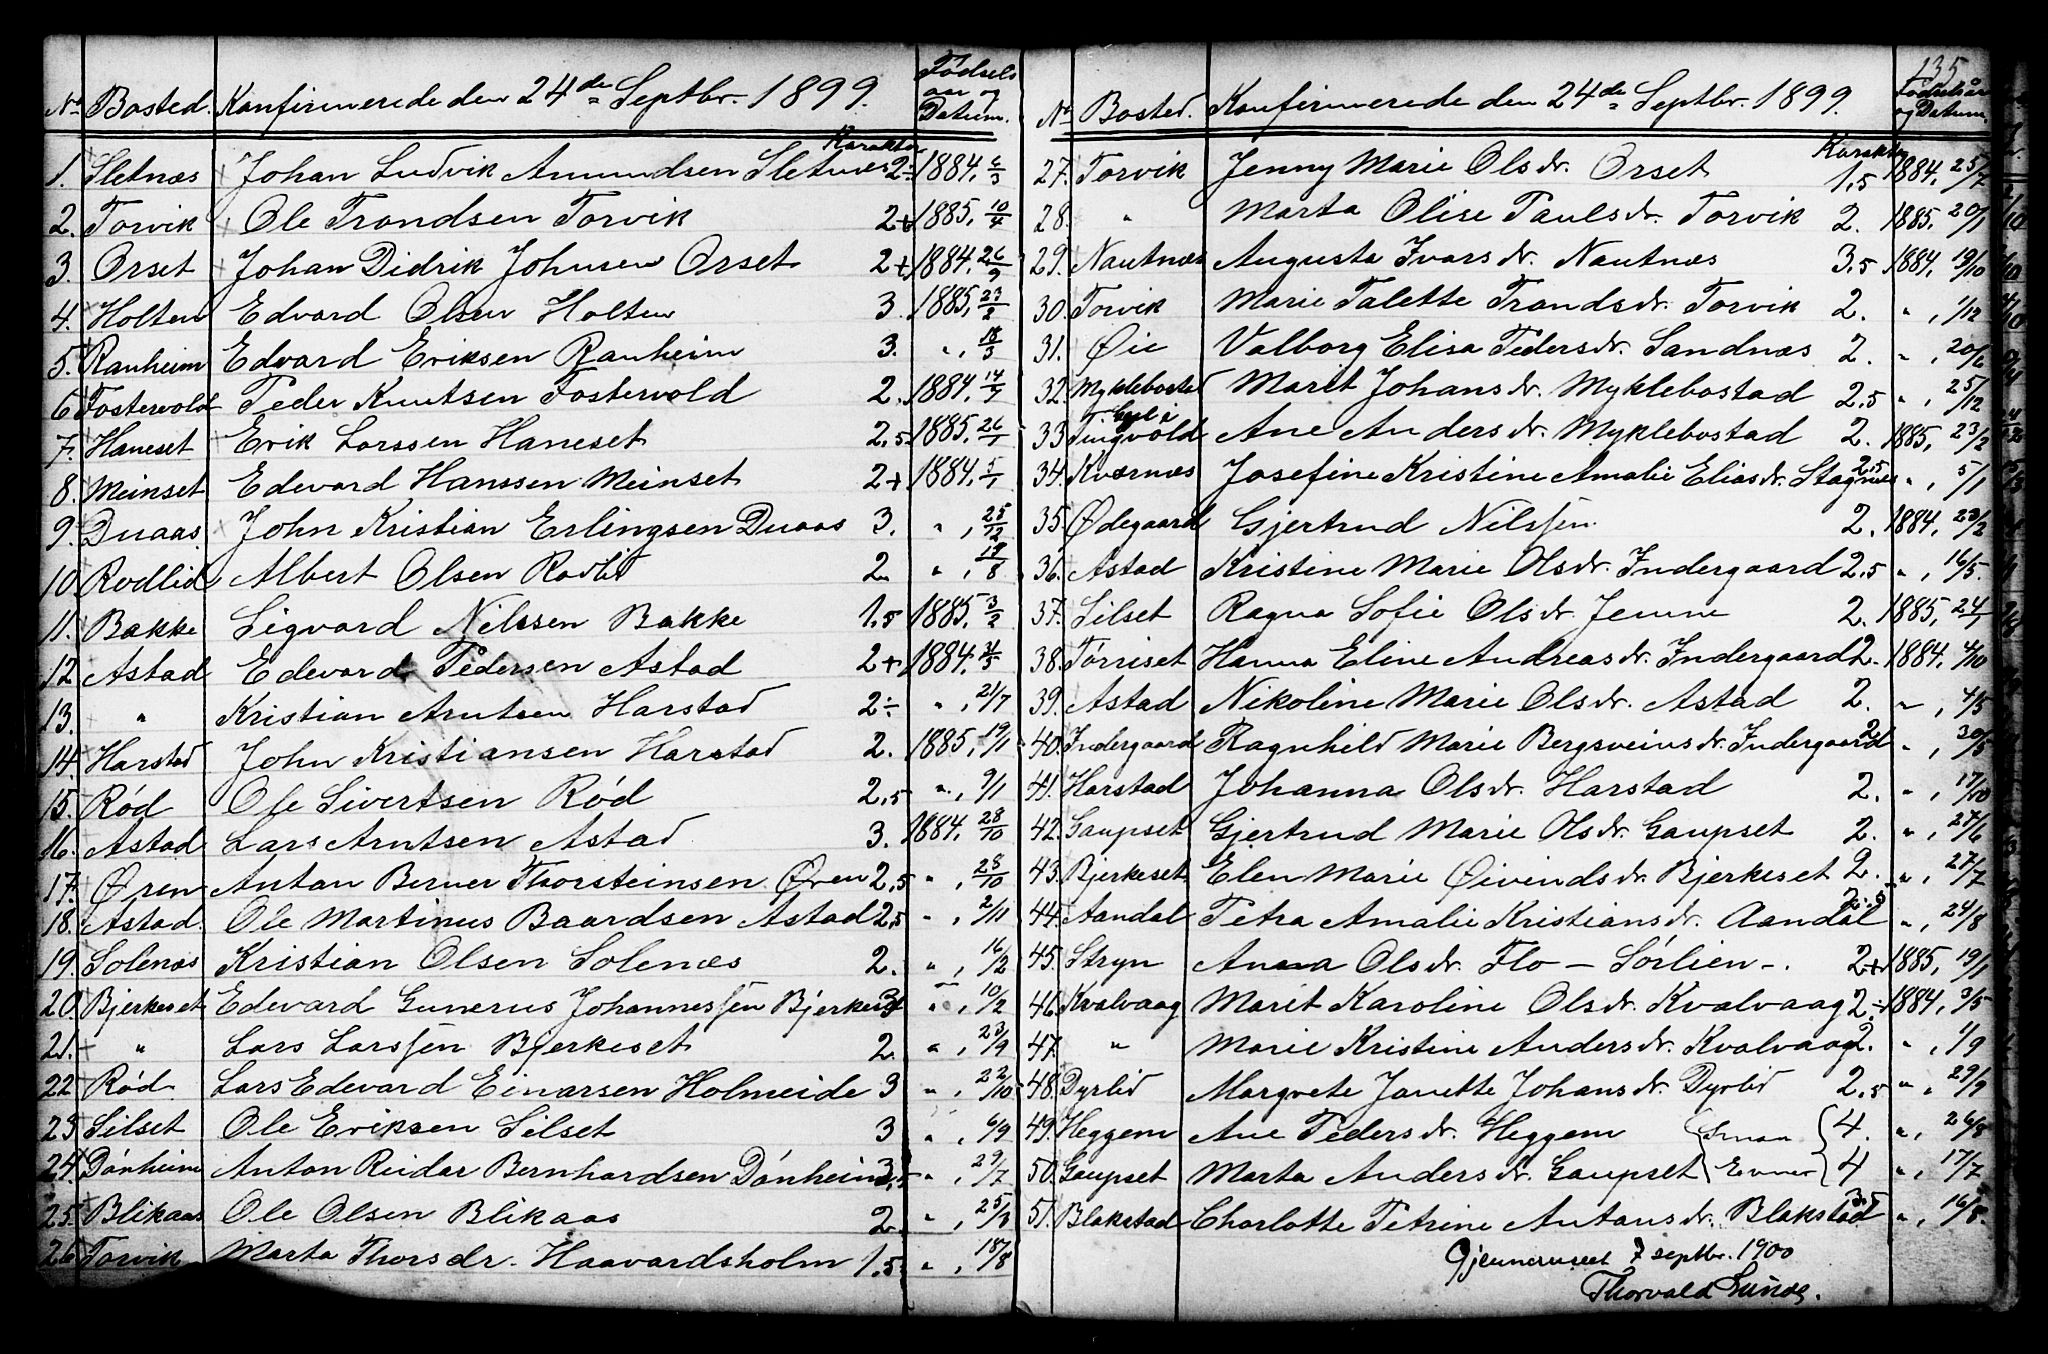 No Bosted. Konfirmerede den 24de Septbr. 1899. Fødsels aar og Datum.
Karakter
1. Sletnæs Johan Ludvik Amundsen Sletnæs 2÷ 1884, 6/3
2. Torvik Ole Trondsen Torvik 2+ 1885, 10/4
3. Orset Johan Didrik Johnsen Orset 2+ 1884, 26/9
4. Holten Edvard Olsen Holten 3. 1885, 23/2
5. Ranheim Edvard Eriksen Ranheim 3. ", 18/3
6. Fostervold Peder Knutsen Fostervold 2. 1884, 14/7
7. Haneset Erik Larssen Haneset 2,5 1885, 26/1
8. Meinset Edevard Hanssen Meinset 2+ 1884, 5/1
9. Duaas. John Kristian Erlingsen Duaas 3. ", 25/12
10. Rødlid Albert Olsen Rødlid 2. ", 19/8
11. Bakke Sigvard Nilssen Bakke 1,5 1885, 3/2
12. Astad Edevard Pedersen Astad 2+ 1884,
13. " Kristian Arntsen Harstad 2÷ ", 21/7
14. Harstad John Kristiansen Harstad 2. 1885, 19/1
15. Rød Ole Sivertsen Rød 2,5 ", 9/1
16. Astad Lars Arntsen Astad 3. 1884, 28/10
17. Øren Anton Berner Thorsteinsen Øren 2,5 ", 28/10
18. Astad. Ole Martinus Baardsen Astad 2,5 ", 2/11
19. Solenæs Kristian Olsen Solenæs 2. ", 16/2
20. Bjerkeset Edevard Gunerus Johannessen Bjerkeset 3 ", 10/2
21. " Lars Larssen Bjerkeset 2. ", 23/9
22 Rød Lars Edevard Einarsen Holmeide 3 ", 22/10
23 Silset Ole Eriksen Silset 3 ", 6/9
24. Dønheim Anton Reidar Bernhardsen Dønheim 3,5 ", 29/7
25. Blikaas Ole Olsen Blikaas 2. ", 25/8
26 Torvik Marta Thorsdr. Haavardsholm 1,5 ", 18/8
135
No Bosted. Konfirmerede den 24de Septbr. 1899. Fødselsaar og Datum.
Karakter
27. Torvik Jenny Marie Olsdr. Orset 1,5 1884, 25/7
28. " Marta Olise Paulsdr. Torvik 2. 1885, 20/1
29. Nautnæs Augusta Ivarsdr. Nautnæs 3,5 1884, 19/10
30. Torvik Marie Talette Trondsdr. Torvik 2. ", 1/12
31. Øie Valborg Elisa Pedersdr. Sandnæs 2. ", 20/6
32. Myklebostad Marit Johansdr. Myklebostad 2,5 ", 25/12
33. Tingvold Ane Andersdr. Myklebostad 2. 1885, 23/2
34. Kværnæs Josefine Kristine Amalie Eliasdr. Stagnæs 2,5 ", 5/1
35. Ødegaard Gjertrud Nilssen. 2. 1884, 23/2
36. Astad Kristine Marie Olsdr. Indergaard 2,5 ", 16/5.
37. Silset Ragna Sofie Olsdr. Jenne 2. 1885, 24/1
38. Tørriset Hanna Eline Andreasdr. Indergaard 2. 1884, 4/10
39. Astad Nikoline Marie Olsdr. Astad 2. ", 4/5
40. Indergaard Ragnhild Marie Bergsveinsdr. Indergaard 2 ", 30/5
41. Harstad Johanna Olsdr. Harstad 2. ", 17/10
42. Gaupset Gjertrud Marie Olsdr. Gaupset 2. ", 27/6
43. Bjerkeset Elen Marie Øivindsdr. Bjerkeset 2. ", 27/7
44. Aandal Petra Amalie Kristiansdr. Aandal 2,5 ", 24/8
45. Stryn Anna Olsdr. Flo - Sørlien -. 2+ 1885, 19/1
46. Kvalvaag Marit Karoline Olsdr. Kvalvaag 2÷ 1884, 3/5
47. " Marie Kristine Andersdr. Kvalvaag 2. ", 1/9
48. Dyrlid Margrete Janette Johansdr. Dyrlid 2,5 ", 29/9
49. Heggem Ane Pedersdr. Heggem { Smaa { 4. ", 26/8
50. Gaupset Marta Andersdr. Gaupset { Evner { 4 ", 17/7
51. Blakstad Charlotte Petrine Antonsdr. Blakstad 3. ", 16/8.
Gjennemseet 7 septbr. 1900
Thorvald Sunde.